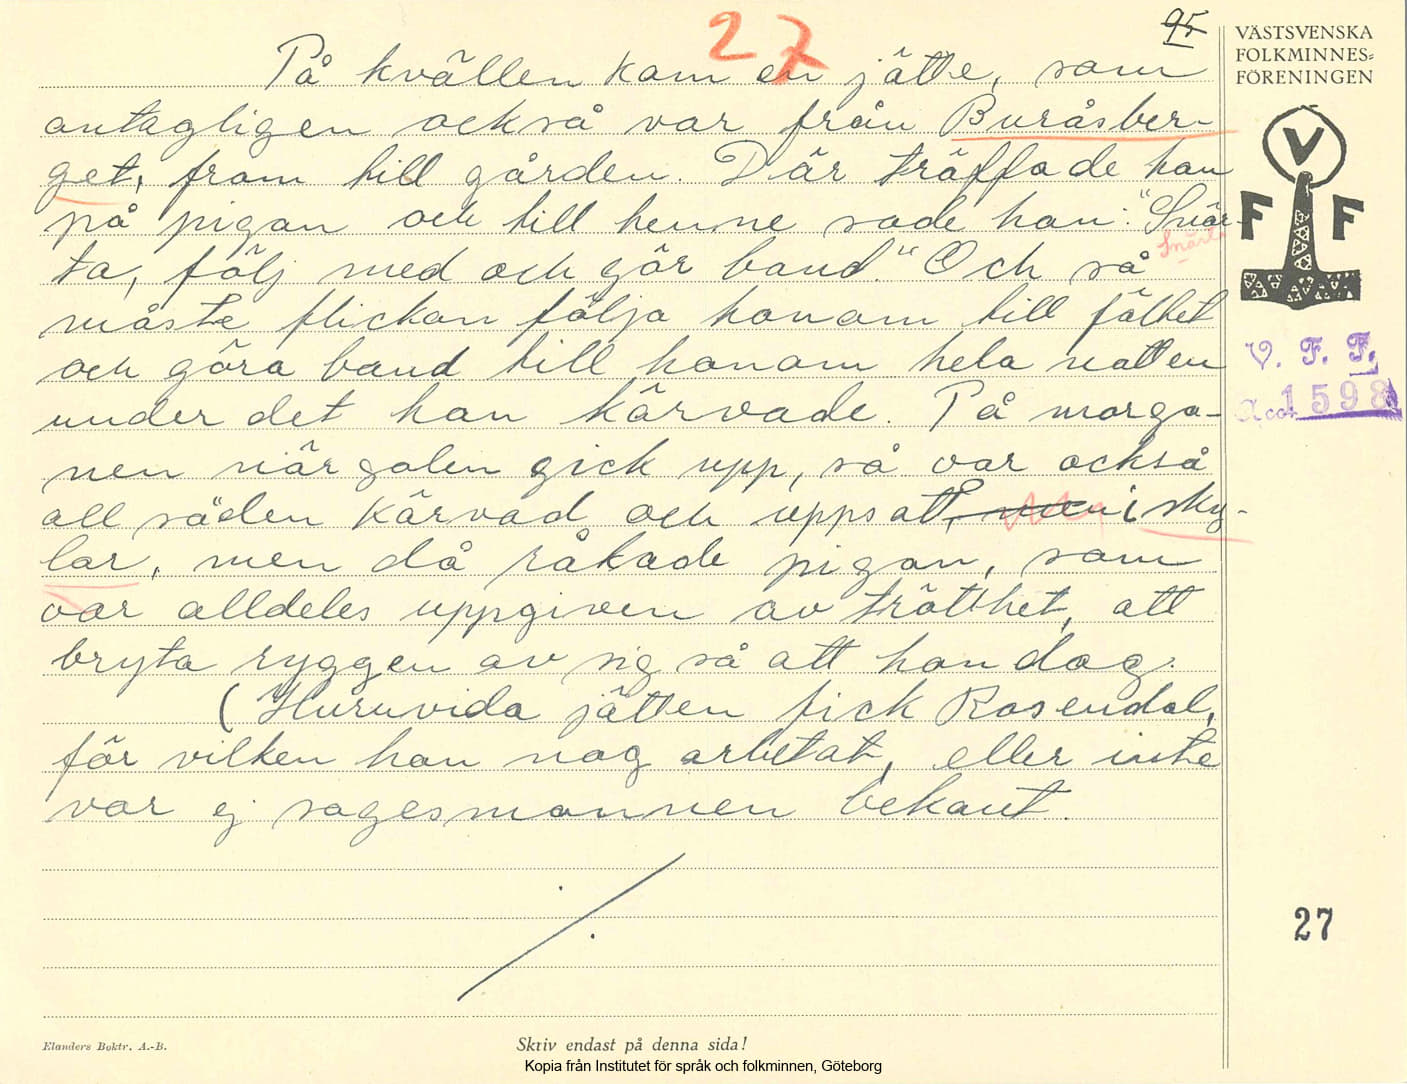 27
95
På kvällen kom en jätte, som
antagligen också var från Buråsber-
get, fram till gården. Där träffade han
på pigan och till henne sade han: "Snär-
Snärta
ta, följ med och gör band." Och så
måste flickan följa honom till fältet
och göra band till honom hela natten
under det han kärvade. På morgo-
nen när golen gick upp, så var också
all säden kärvad och uppsatt, men i sky-
lar, men då råkade pigan, som
var alldeles uppgiven av trötthet, att
bryta ryggen av sig så att hon dog.
(Huruvida jätten fick Rosendal,
för vilken han nog arbetat, eller inte
var ej sagesmannen bekant.
VÄSTSVENSKA
FOLKMINNES-
FÖRENINGEN
V
F F
V. F. F.
Acc. 1598
27
Elanders Boktr. A.-B.
Skriv endast på denna sida!
Kopia från Institutet för språk och folkminnen, Göteborg